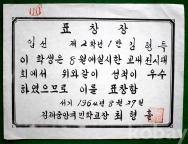 표창장
임신 제2학년1반 김형득
이 학생은 8월에실시한 교내진시대
회에서 위와같이 성적이 우수
하였으므로 이를 표창함
서기 1964년 8월 29일
국민학교장 최형울